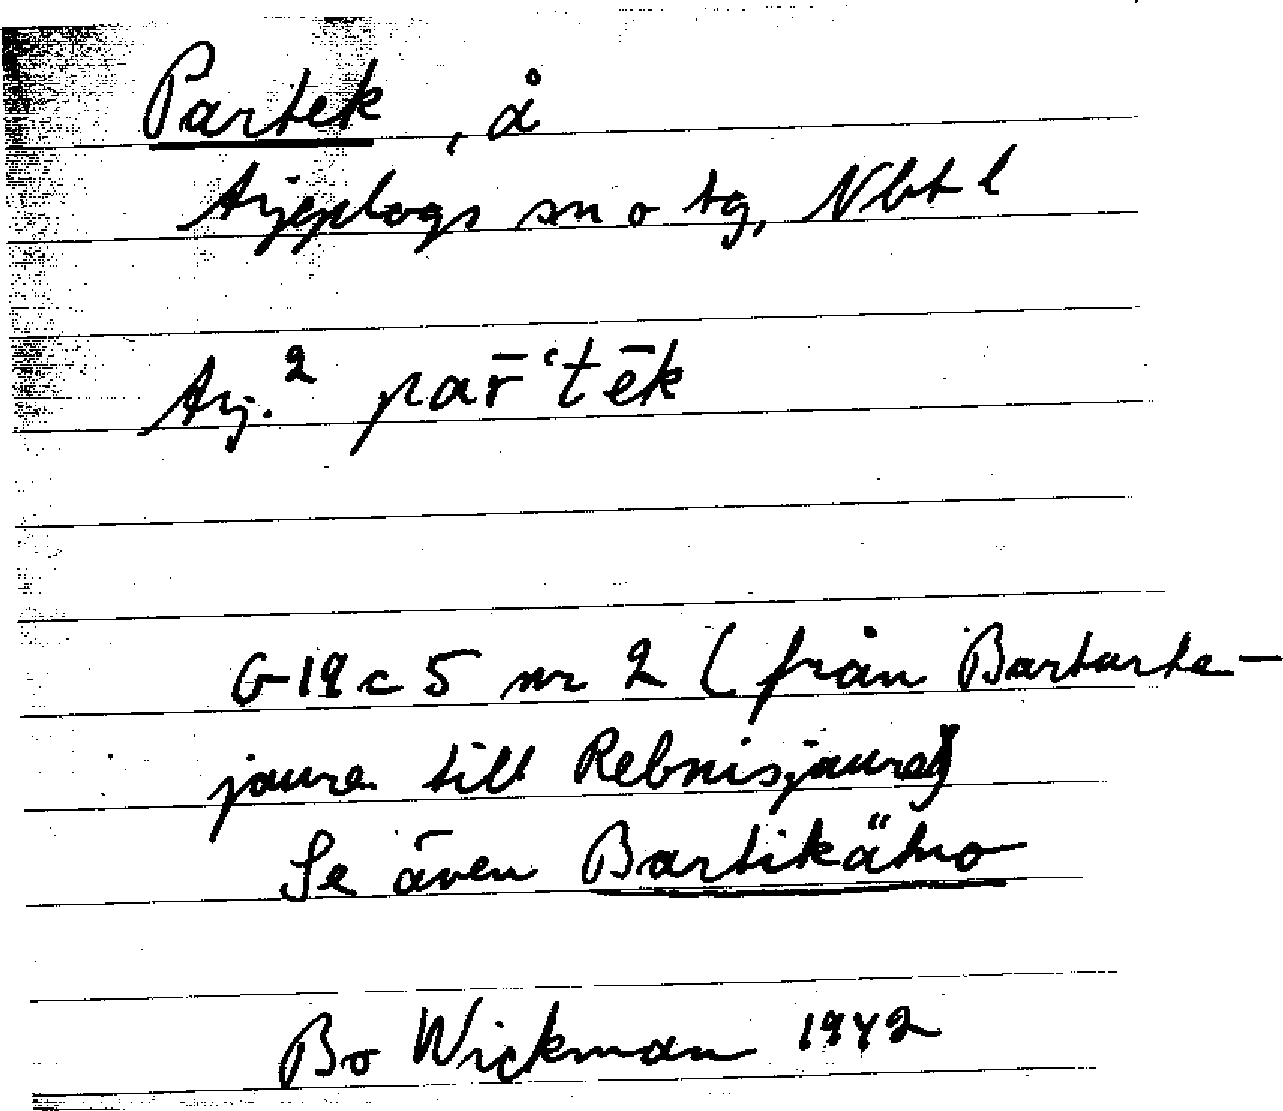 Partek, å
Arjeplogs sn o tg, Nbt l
Arj.² par̄ʿtēk
G 19 c 5 nr 2 (från Bartarte-
jaure till Rebnisjaure)
Se även Bartikätno
Bo Wickman 1942